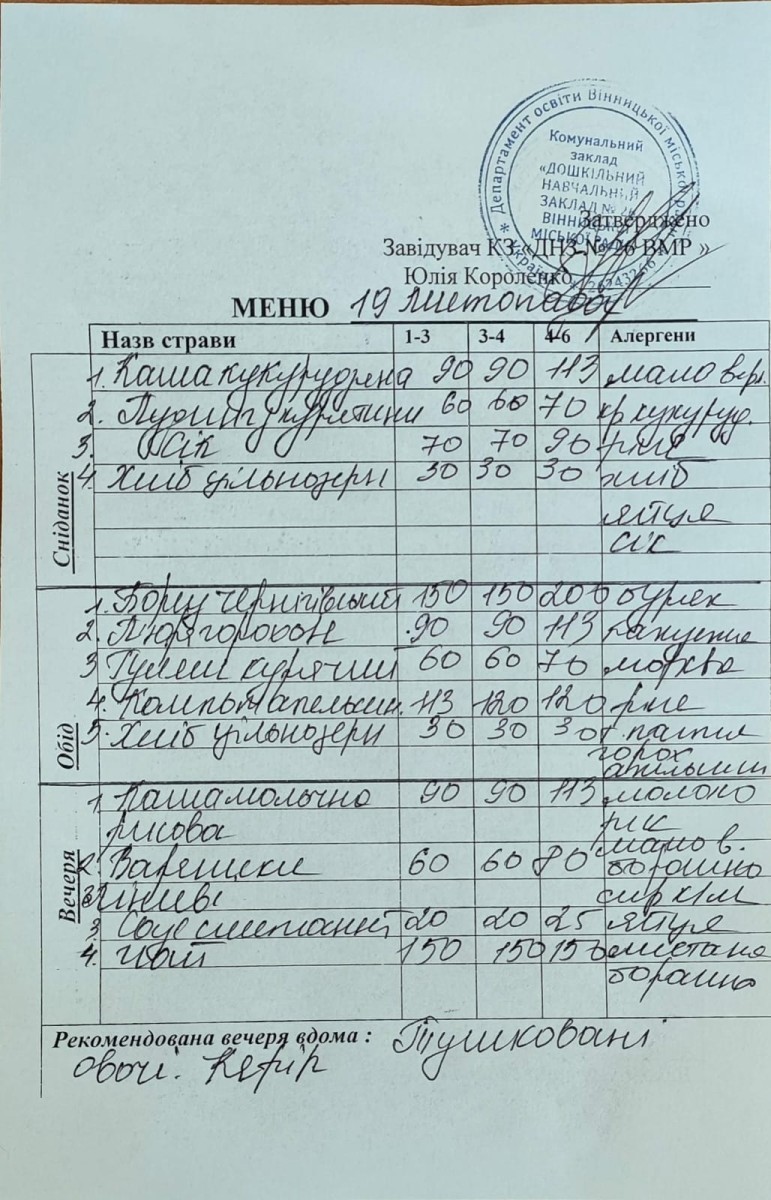 Департамент освіти Вінницької міської
Комунальний
заклад
«ДОШКІЛЬНИЙ
НАВЧАЛЬНИЙ
ЗАКЛАД №
Затверджено
Завідувач КЗ «ДНЗ № 26 ВМР »
Юлія Короленко
МЕНЮ 19 Листопада
Назв страви 1-3 3-4 4-6 Алергени
Сніданок
1. Каша кукурудзяна 90 90 113 масло верш.
2. Пудинг курятини 60 60 70 кр кукуруд.
3. Сік 70 70 90
4. Хліб цільнозерн 30 30 30 хліб
яйця
сік
Обід
1. Борщ Чернігівський 150 150 200 буряк
2. Пюре горохов 90 90 113
3 Гуляш курячий 60 60 70 морква
4. Компот апельсин. 113 120 120
5. Хліб цільнозерн 30 30 30
горох
апельсин
Вечеря
1. Каша молочно 90 90 113 молоко
рисова рис
масло в.
2. Вареники 60 60 80 борошно
Ліниві сир к/м
3 Соус сметанний 20 20 25 яйця
4. Чай 150 150 150 сметана
борошно
Рекомендована вечеря вдома : Тушковані
овочі. Кефір